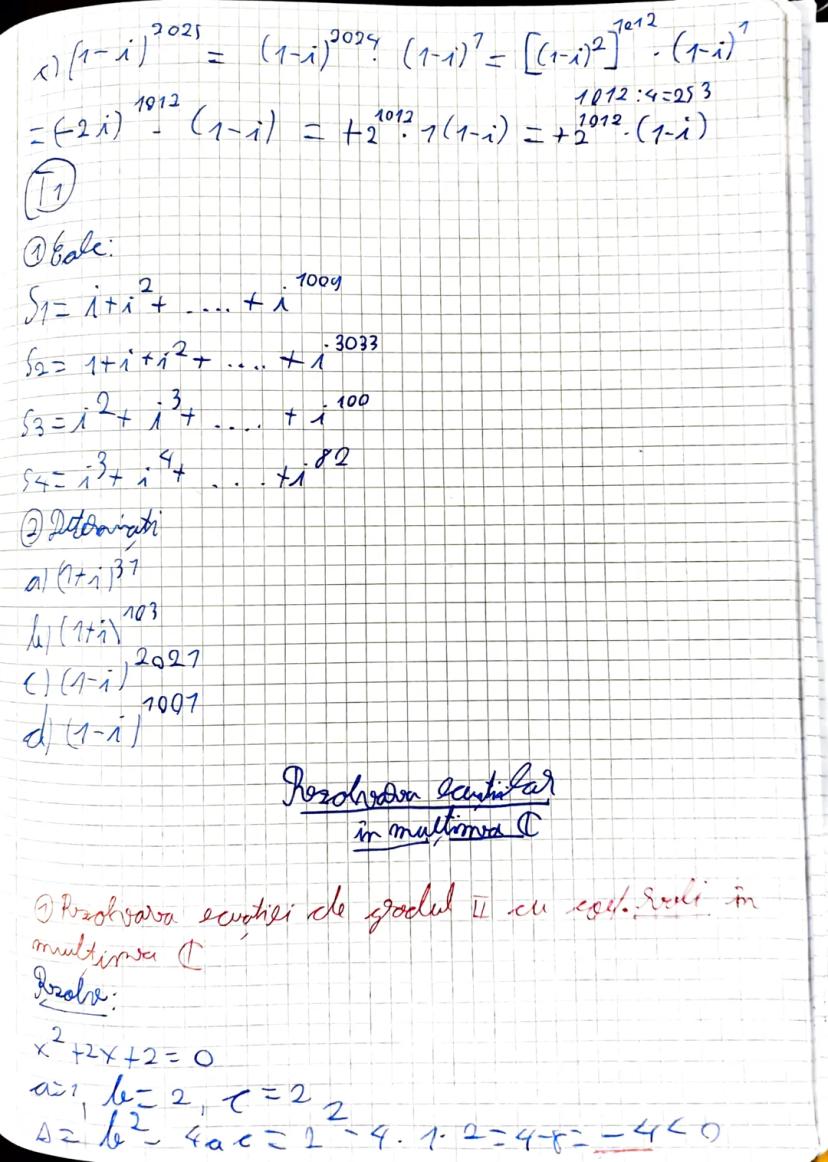 c) (1-i)^2025 = (1-i)^2024 · (1-i)^1 = [(1-i)^2]^1012 · (1-i)^1
1012:4=253
=(-2i)^1012 · (1-i) = +2^1012 · 1(1-i) = +2^1012 · (1-i)
T1
① Calc:
S1= i+i^2+ .... + i^1009
S2= 1+i+i^2+ .... +i^3033
S3= i^2+ i^3+ .... + i^100
S4= i^3+ i^4+ .... +i^82
② Determinați
a) (1+i)^31
b) (1+i)^103
c) (1-i)^2021
d) (1-i)^1001
Rezolvarea ecuațiilor
în mulțimea ℂ
① Rezolvarea ecuației de gradul II cu coef. reali în
mulțimea ℂ
Rezolv:
x^2+2x+2=0
a=1, b=2, c=2
Δ= b^2-4ac=2^2-4·1·2=4-8=-4<0